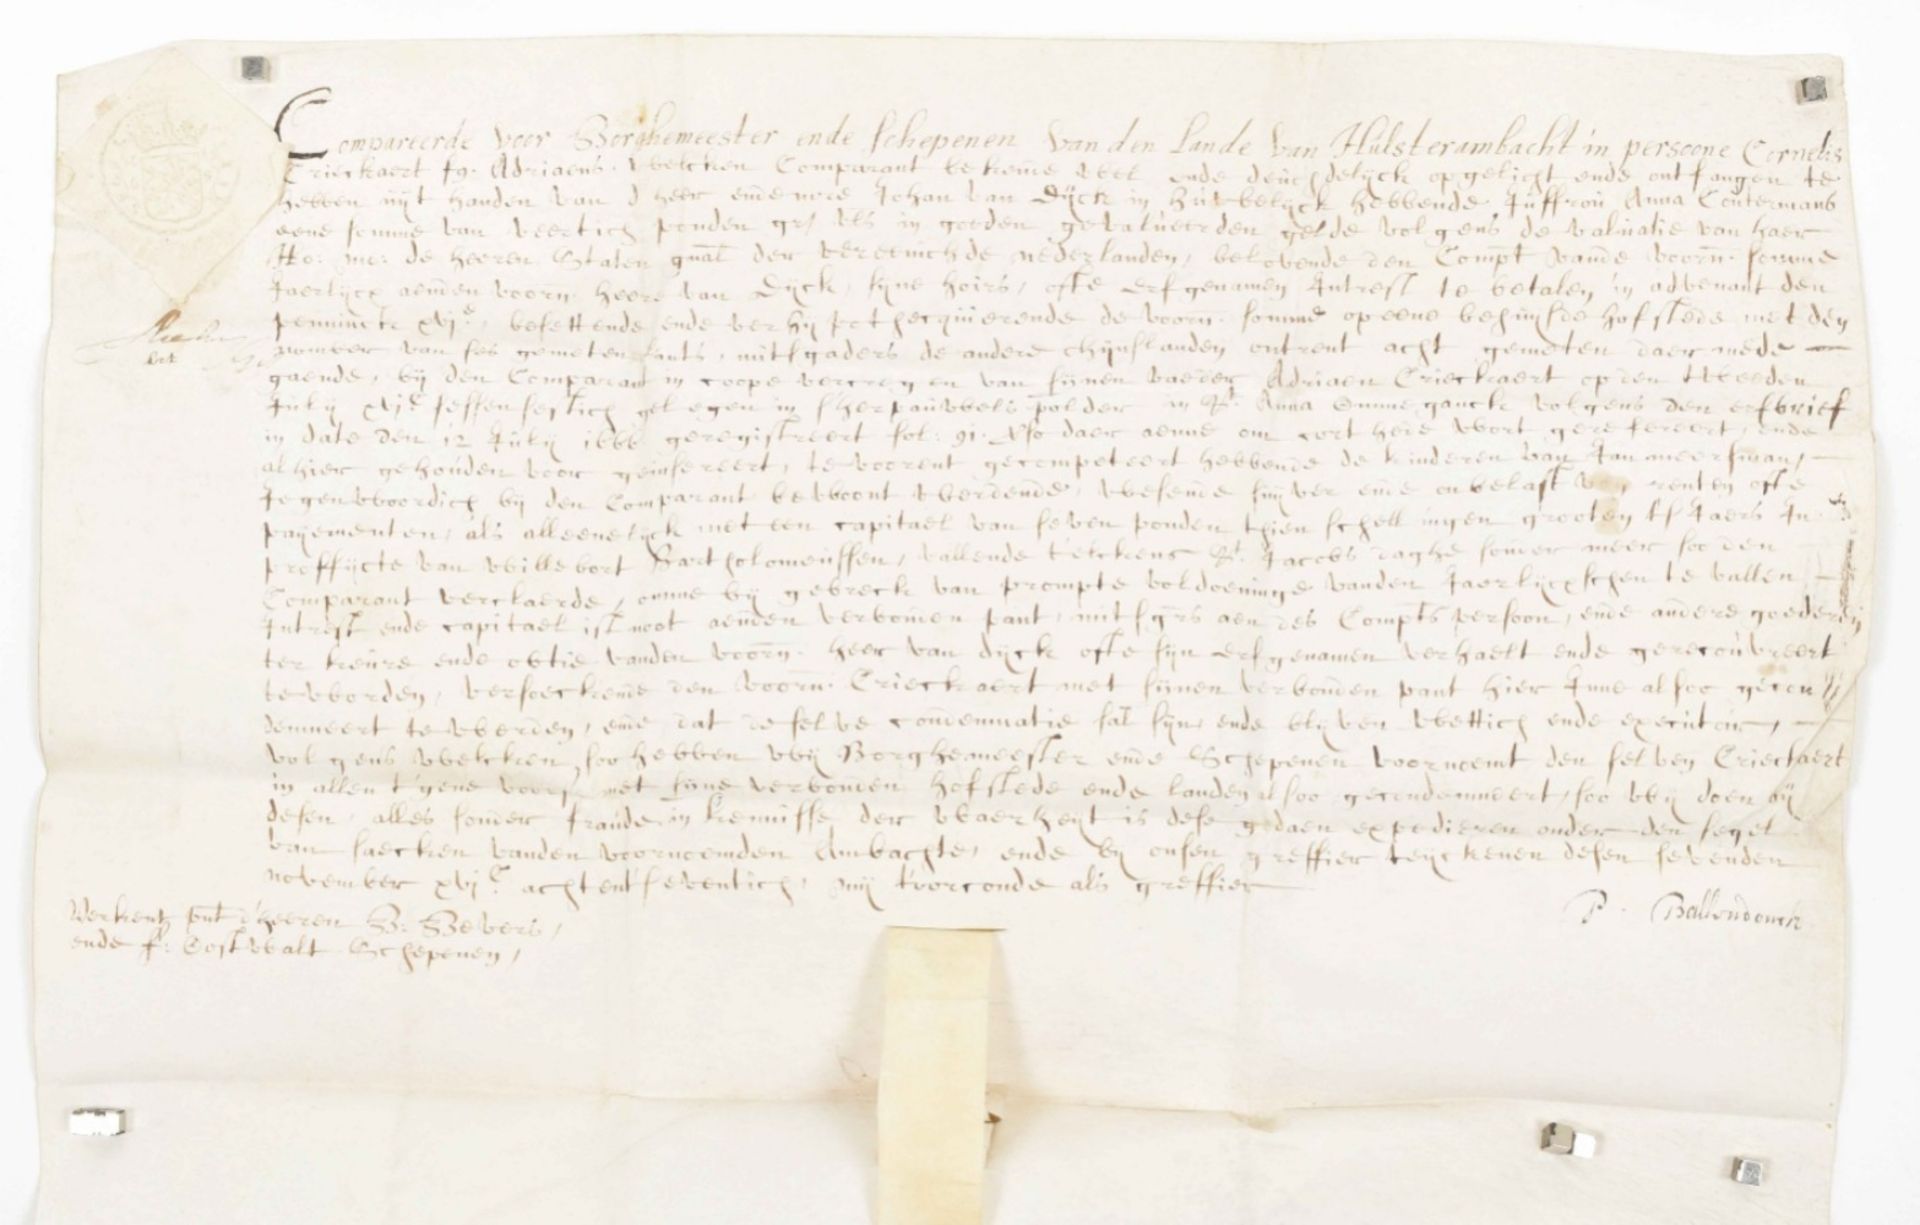 Compareerde voor Borghemeester ende schepenen van den Lande van Hulsterambacht in persoone Cornelis
Crieckaert fs. Adriaens. welcken Comparant bekende wel ende deuchdelijck opgelicht ende ontfangen te
hebben uijt handen van d'heer ende Johan van Dijck in huwelijck hebbende Juffrou Anna Coutermans
eene somme van veertich ponden gr. vls in goeden gevalueerden gelde volgens de valuatie van haer
Ho: mo: de heeren Staten gnal der vereenichde nederlanden, belovende den Compt vande voorn. somme
Jaerlijcx aenden voorn. heere van Dijck, sijne hoirs, ofte erfgenamen Intrest te betalen in advenant den
penninck xvje, besettende ende verhijpothecquierende de voorn. somme op eene behuijsde hofstede met den
nomber van ses gemeten lants, mitsgaders de andere chijnslanden ontrent acht gemeten daer mede
gaende, bij den Comparant in coope vercregen van sijnen vader Adriaen Crieckaert op den tweeden
Julij xvjc sessensestich gelegen in sherpauwels polder in St. Anna Ommeganck volgens den erfbrief
in date den 12 Julij 1666 geregistreert fol: 91. Also daer aenne om cortheijt wort gerefereert, ende
alhier gehouden voor geinsereert, te voorent gecompeteert hebbende de kinderen van Jan meersman,
Jegenwoordich bij den Comparant bewoont werdende, wesende suijver ende onbelast van renten ofte
payementen, als alleenelijck met een capitael van seven ponden thien schellingen grooten tsJaers In
proffijcte van Willebort Bartholomeussen, vallende telckens St. Jacobs daghe sonder meer soo den
Comparant verclaerde, omme bij gebreck van prompte voldoeninge vanden Jaerlijcxschen te vallen
Intrest ende capitael ist noot aenden verbonden pant, mitsgrs aen des Compts persoon, ende andere goederen
ter keure ende obtie vanden voorn. heer van dijck ofte sijn erfgenamen verhaelt ende gerecouvreert
te worden, versoeckende den voorn. Crieckaert met sijnen verbonden pant hier Inne alsoo gecon
demneert te werden, ende dat deselve condemnatie sal sijn, ende blijven wettich ende executoir,
volgens welcken, soo hebben wij Borghemeester ende Schepenen voornoemt den selven Crieckaert
in allen t'gene voors. met sijne verbonden hofstede ende landen alsoo gecondemneert, soo wij doen bij
desen, alles sonder fraude, in kennisse der waerheijt is dese gedaen expedieren onder den segel
van saecken vanden voornoemden Ambachte, ende bij onsen greffier teijckenen desen sevenden
november xvjc achtentseventich, mij t'orconde als greffier
P. Ballendonck
Werkent pnt d'heeren B: Bevers,
ende f: Oostwalt Schepenen,